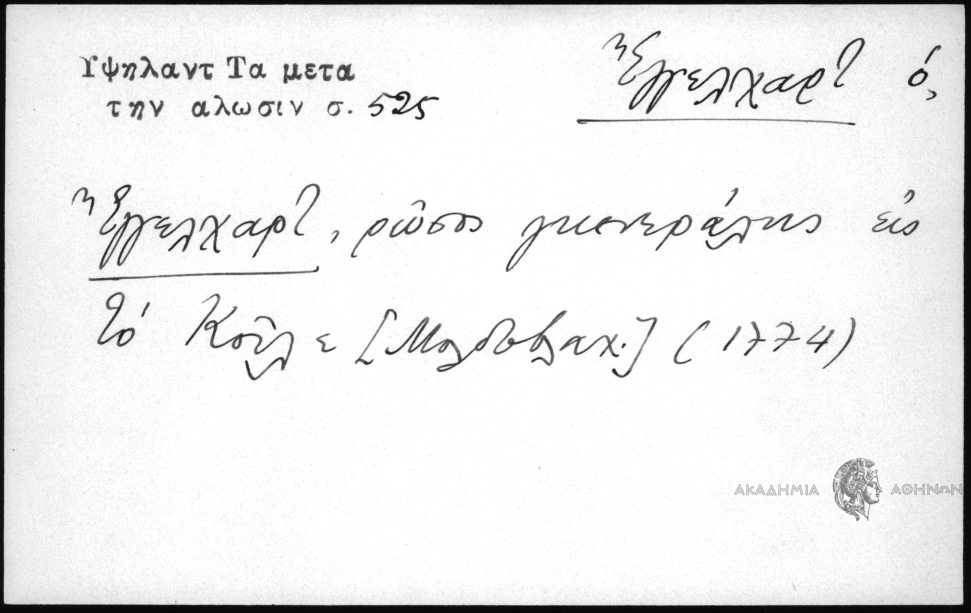 Υψηλαντ Τα μετα
την αλωσιν σ. 525
Ἔγγελχαρτ ὁ,
Ἔγγελχαρτ, ρῶσος γκενεράλης εἰς
τό Κοῦλε [Μολδοβλαχ.] (1774)
ΑΚΑΔΗΜΙΑ ΑΘΗΝΩΝ